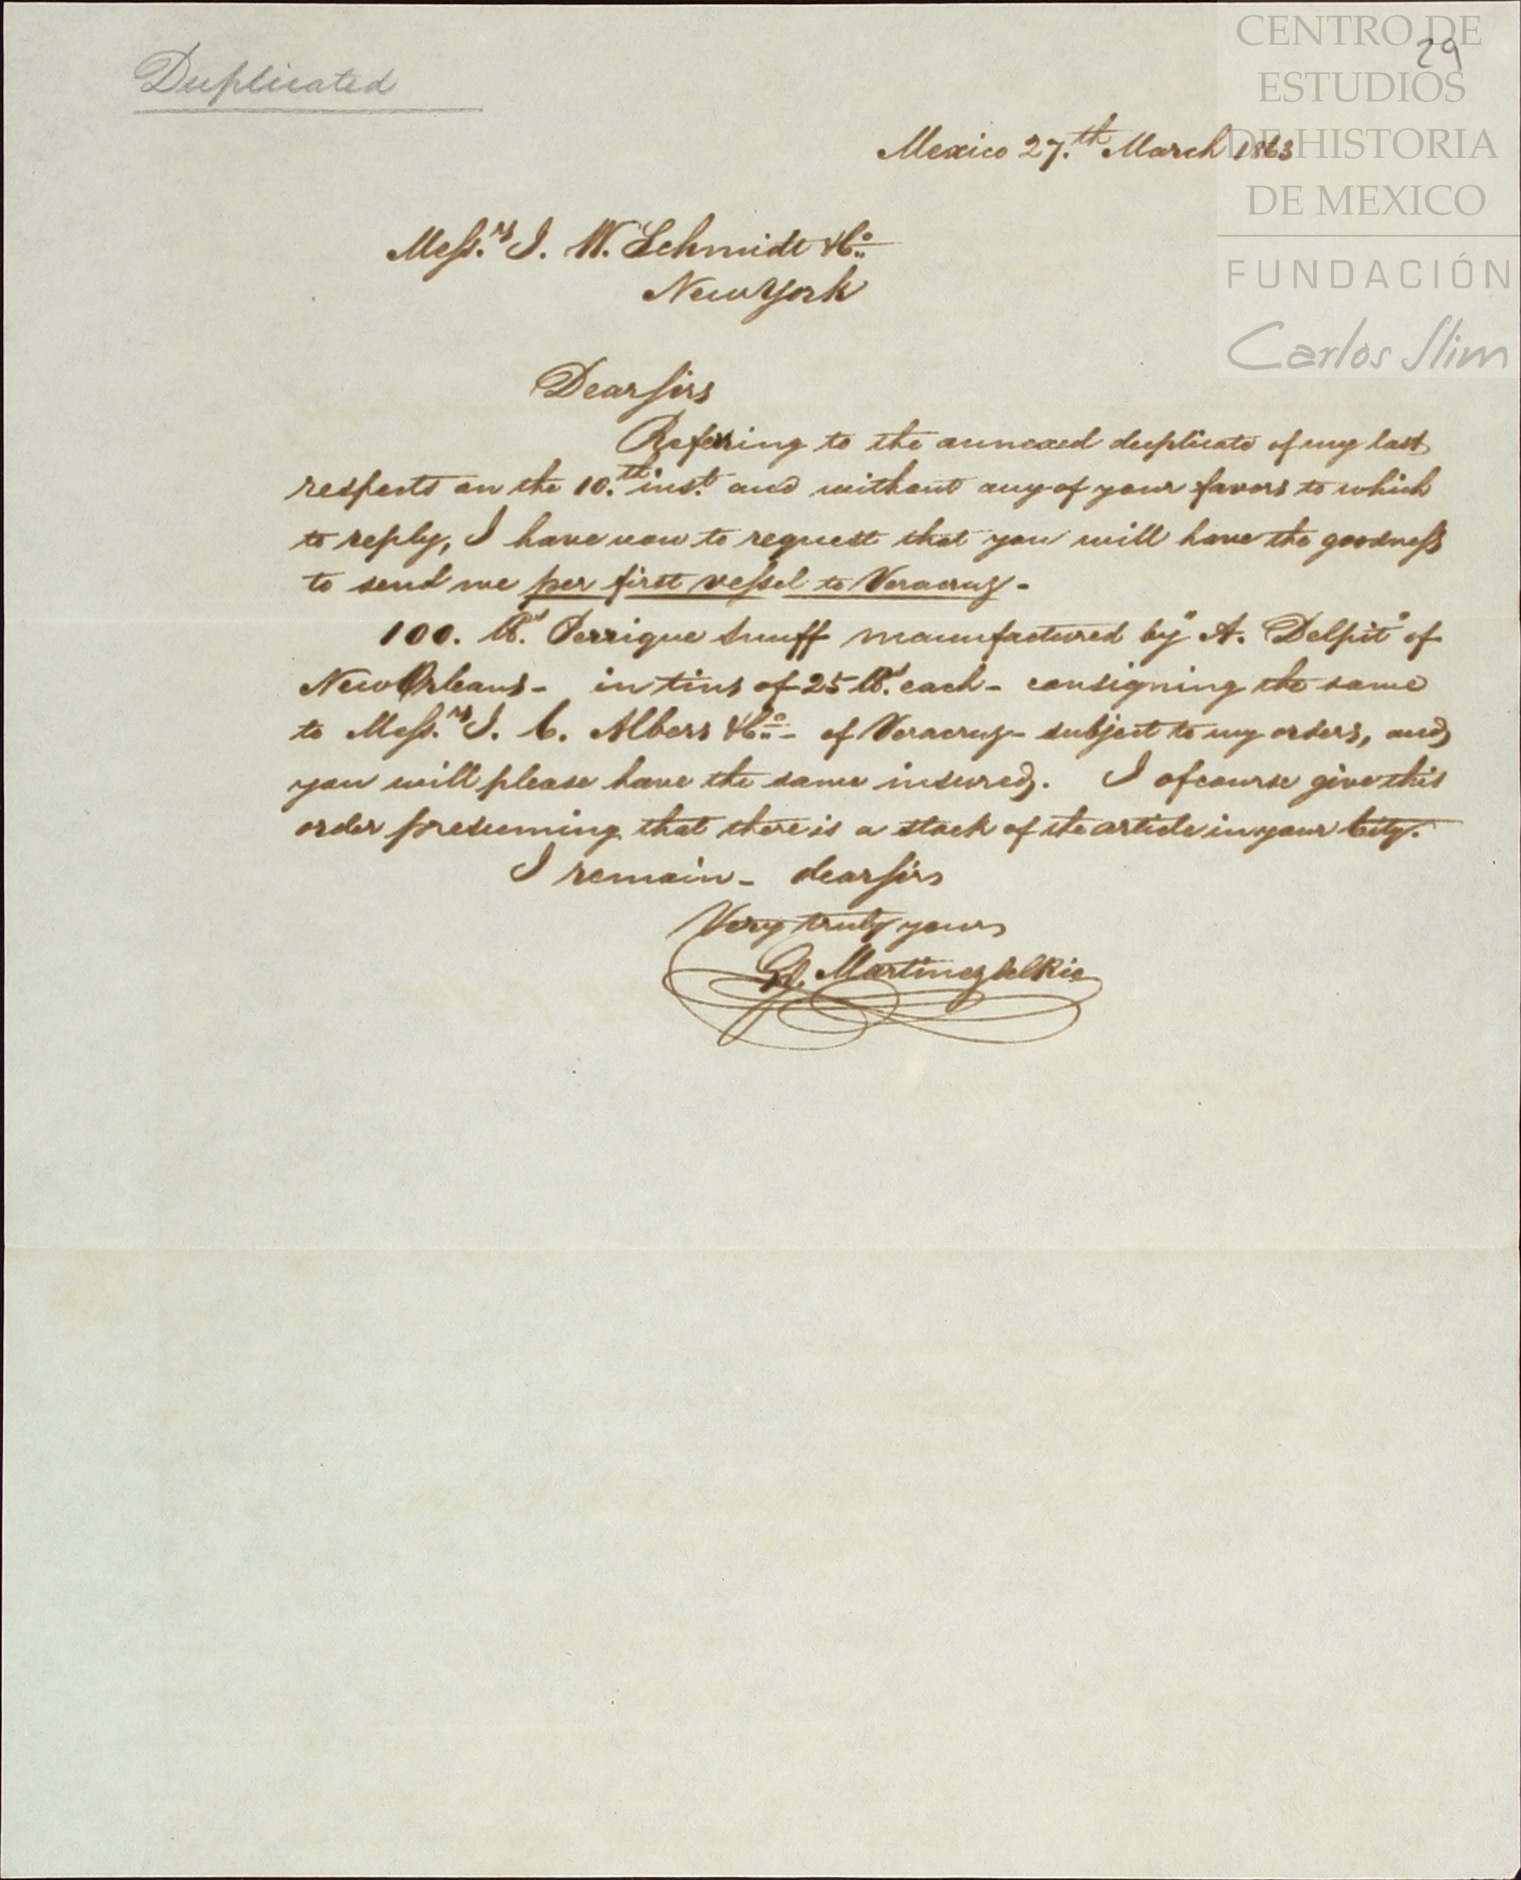 Duplicated
29
CENTRO DE
ESTUDIOS
DE HISTORIA
DE MEXICO
FUNDACIÓN
Carlos Slim
Mexico 27.th March 1863
Mess.rs J. W. Schmidt & Co
New York
Dear Sirs
Referring to the annexed duplicate of my last
respects on the 10.th inst. and without any of your favors to which
to reply, I have now to request that you will have the goodness
to send me per first vessel to Veracruz -
100. lbs. Perrique Snuff manufactured by "A. Delpit" of
New Orleans - in tins of 25 lbs. each - consigning the same
to Mess.rs J. C. Albers & Co - of Veracruz - subject to my orders, and
you will please have the same insured. I of course give this
order presuming that there is a stock of the article in your City.
I remain - dear Sirs
Very truly yours
Martinez del Rio